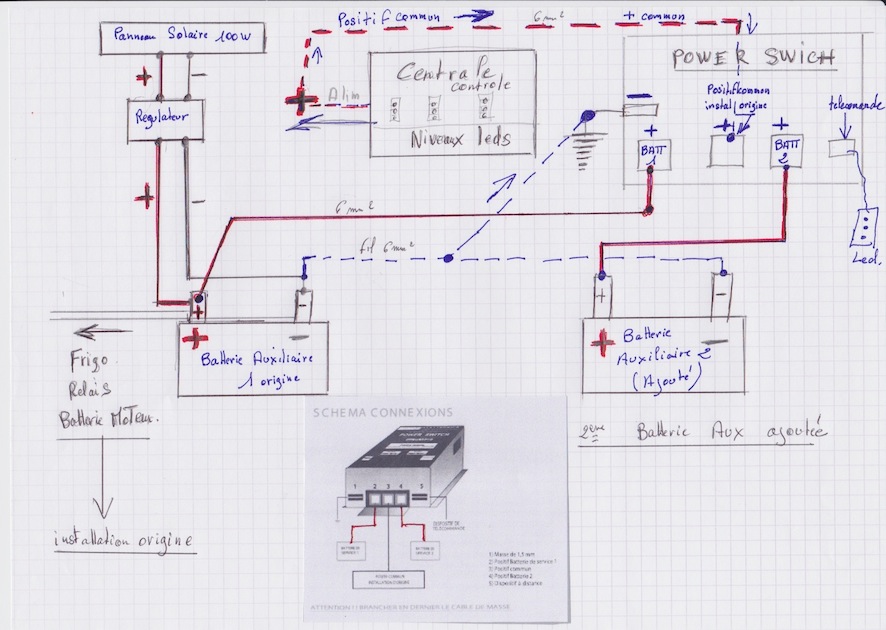 Positif commun
6 mm²
+ common
Panneau Solaire 100W
+
−
Centrale
controle
Niveaux leds
Alim
+
POWER SWICH
Positif kommon
instal origine
telecomande
Regulateur
−
+
BATT
1
+
+
BATT
2
+
−
6 mm²
fil 6 mm²
Led.
+
−
+
−
Batterie Auxiliaire
1 origine
+
−
+
−
Batterie
Auxiliaire 2
(Ajouté)
Frigo
Relais
Batterie Moteur.
installation origine
2eme Batterie Aux ajoutée
SCHEMA CONNEXIONS
POWER SWITCH
1 2 3 4 5
DISPOSITIF DE
TELECOMMANDE
BATTERIE DE
SERVICE 1
BATTERIE DE
SERVICE 2
POSITIF COMMUN
INSTALLATION D'ORIGINE
1) Masse de 1,5 mm
2) Positif Batterie de service 1
3) Positif commun
4) Positif Batterie 2
5) Dispositif à distance
ATTENTION ! ! BRANCHER EN DERNIER LE CABLE DE MASSE